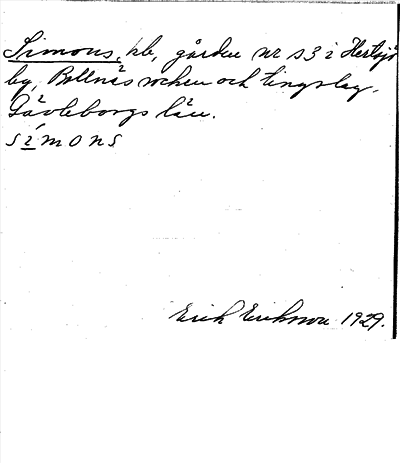 Simons, kb, gården nr 53 i Hertsjö
by, Bollnäs socken och tingslag.
Gävleborgs län.
símons
Erik Eriksson 1929.